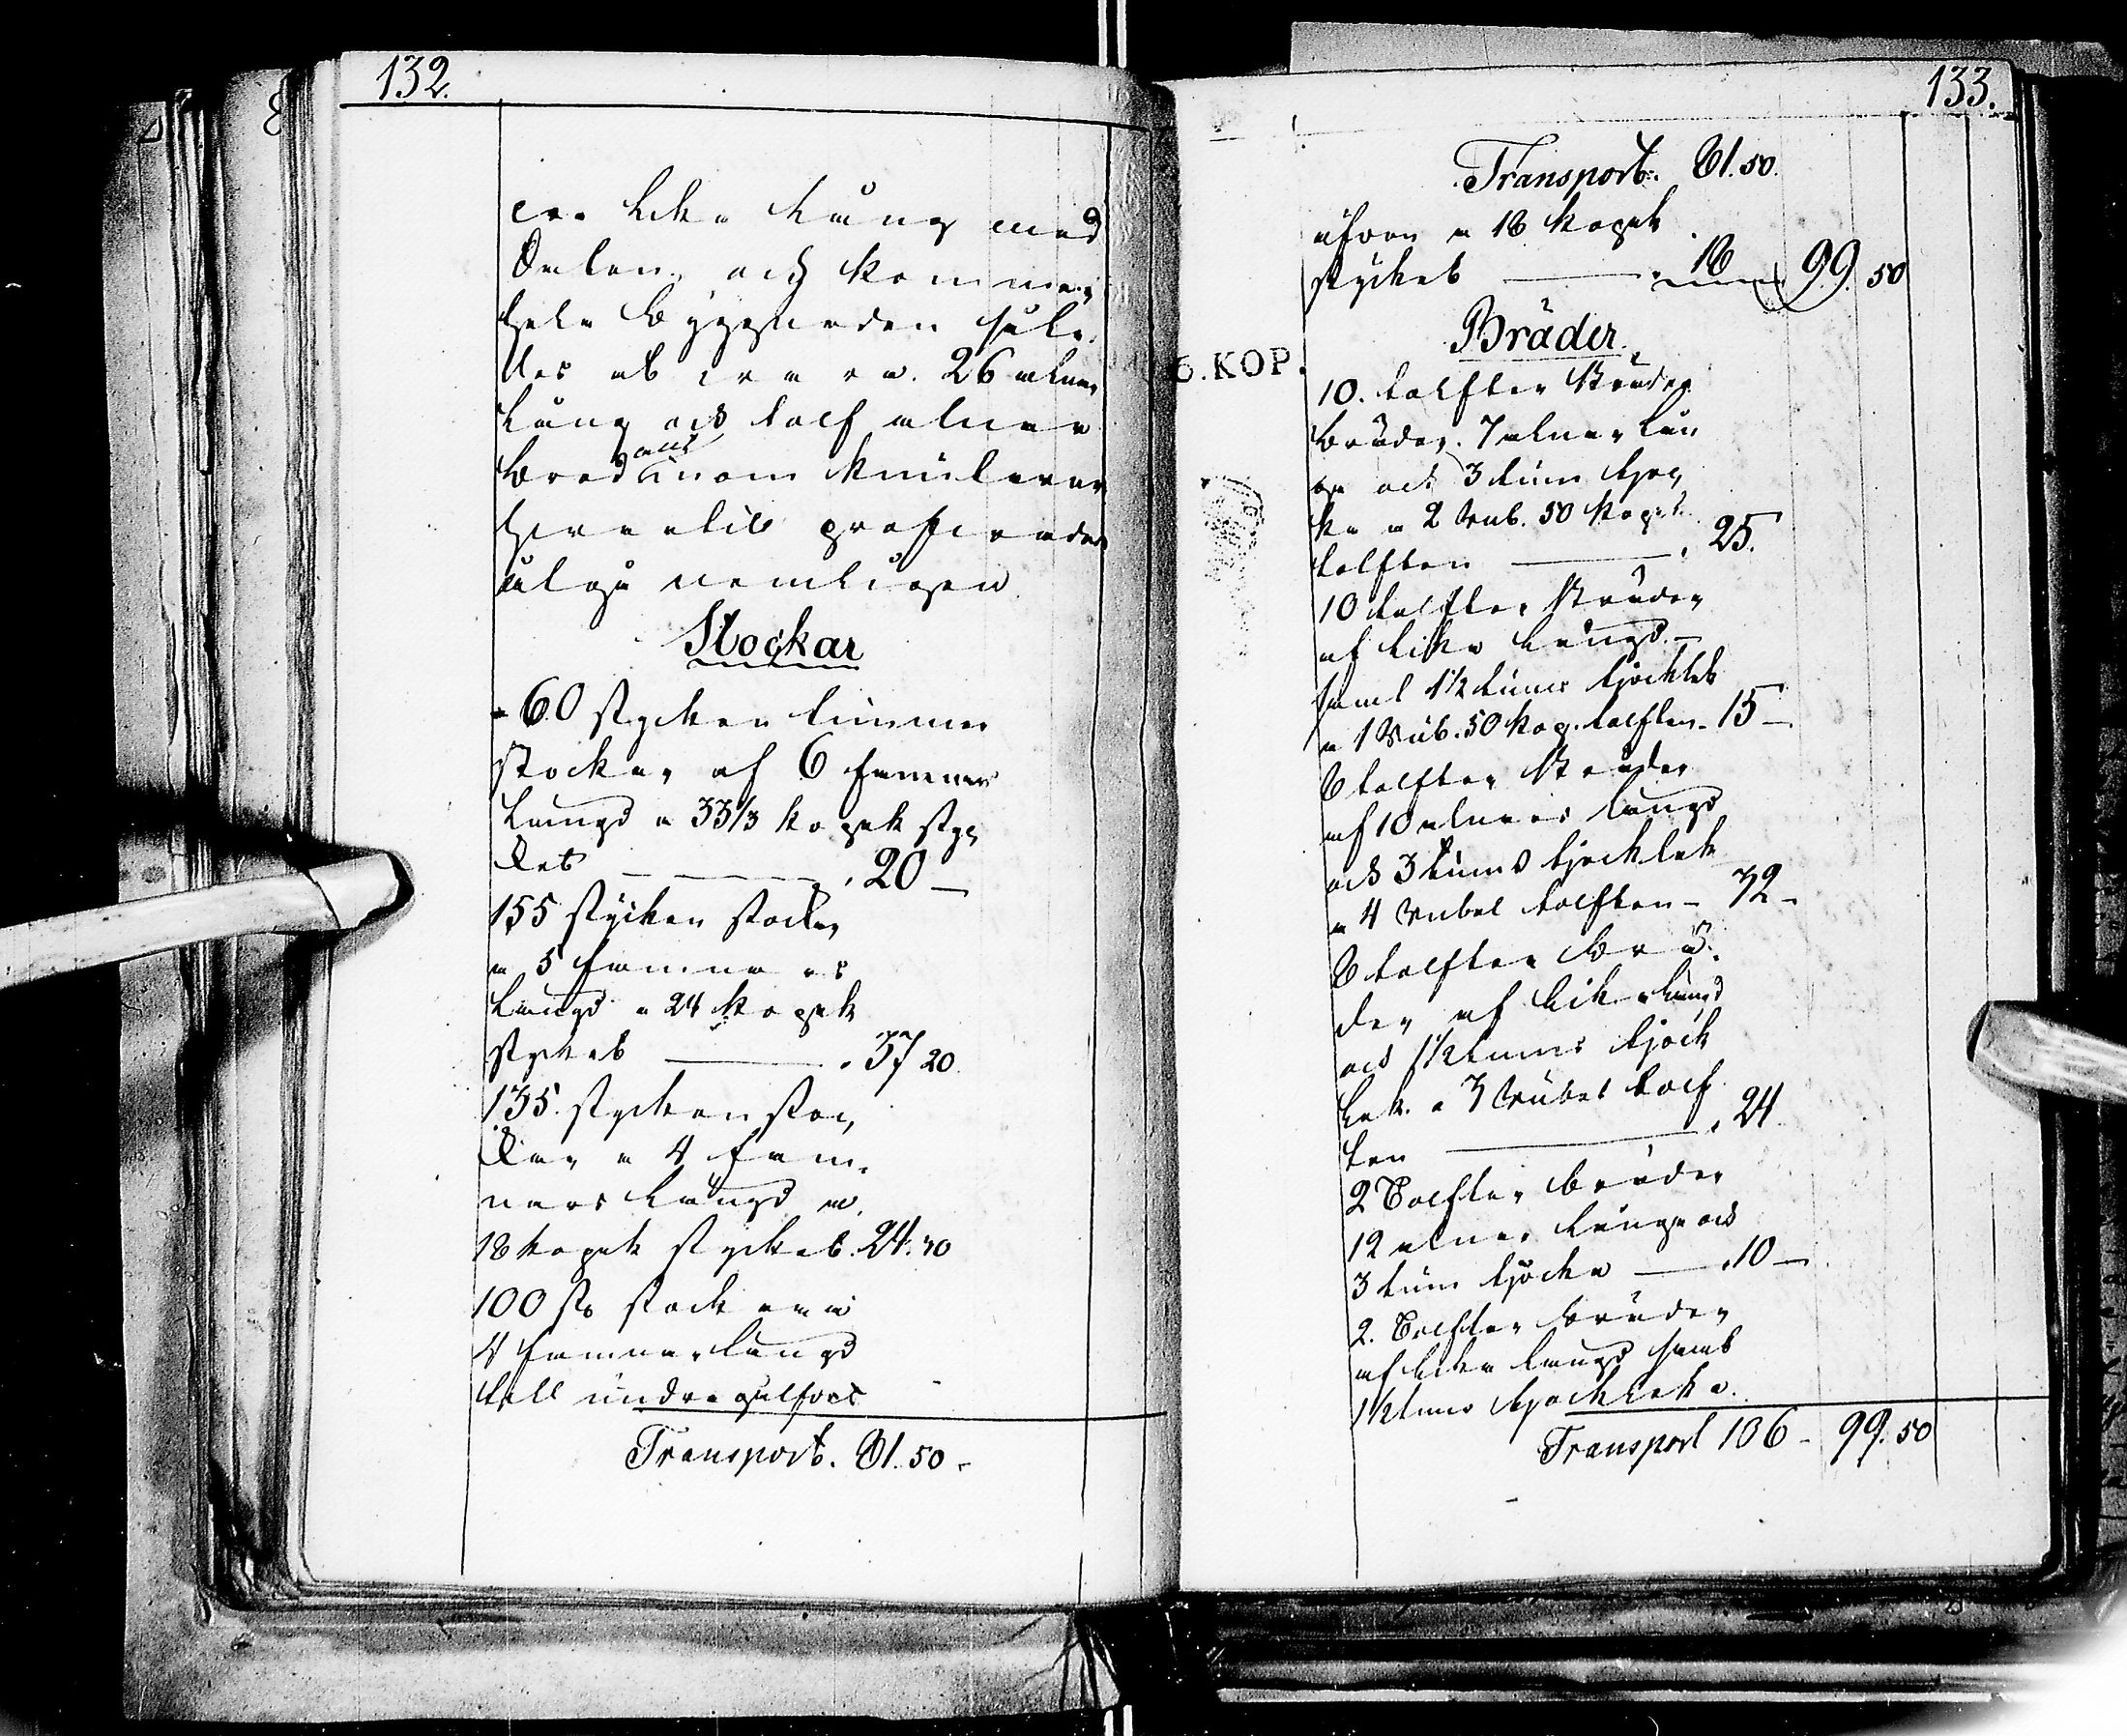 132.
ers lika lång med
Salen, och kommer
hela byggnaden såle„
des at vara 26 alnar
lång och tolf alnar
bred allt inom knutarna
hvartill
åtgå nemligen
Stockar
60 stycken timmer
stockar af 6 famnars
längd a 33 1/3 kopek styc„
ket - 20 -
155 stycken stockar
a 5 famnars
längd a 24 kopek
stycket - 37 20
135. stycken stoc„
kar a 4 fam„
nars längd a
18 kopek stycket. 24.30
100 st stockar a
4 famnar längd
till undra golfvet
Transport. 81.50 -
133.
Transport. 81.50.
åfvan a 18 kopek
stycket - 18 99.50
Bräder
6.KOP.
10. tolfter
bräder 7 alnar lån
ga och 3 tum tjoc„
ka a 2 Rub. 50 kopek
tolften - 25.
10 tolfter
af lika längd -
samt 1 1/2 tums tjocklek
a 1 Rub. 50 kop. tolften - 15 -
8 tolfter
af 10 alnars längd
och 3 tums tjocklek
a 4 rubel tolften - 32 -
8 tolfter brä„
der af lika längd
och 1 1/2 tums tjock
lek a 3 rubel tolf
ten - 24
2 Tolfter bräder
12 alnar långa och
3 tum tjocka - 10 -
2. Tolfter bräder
af lika längd samt
1 1/2 tums tjocklek a
Transport 106 - 99.50